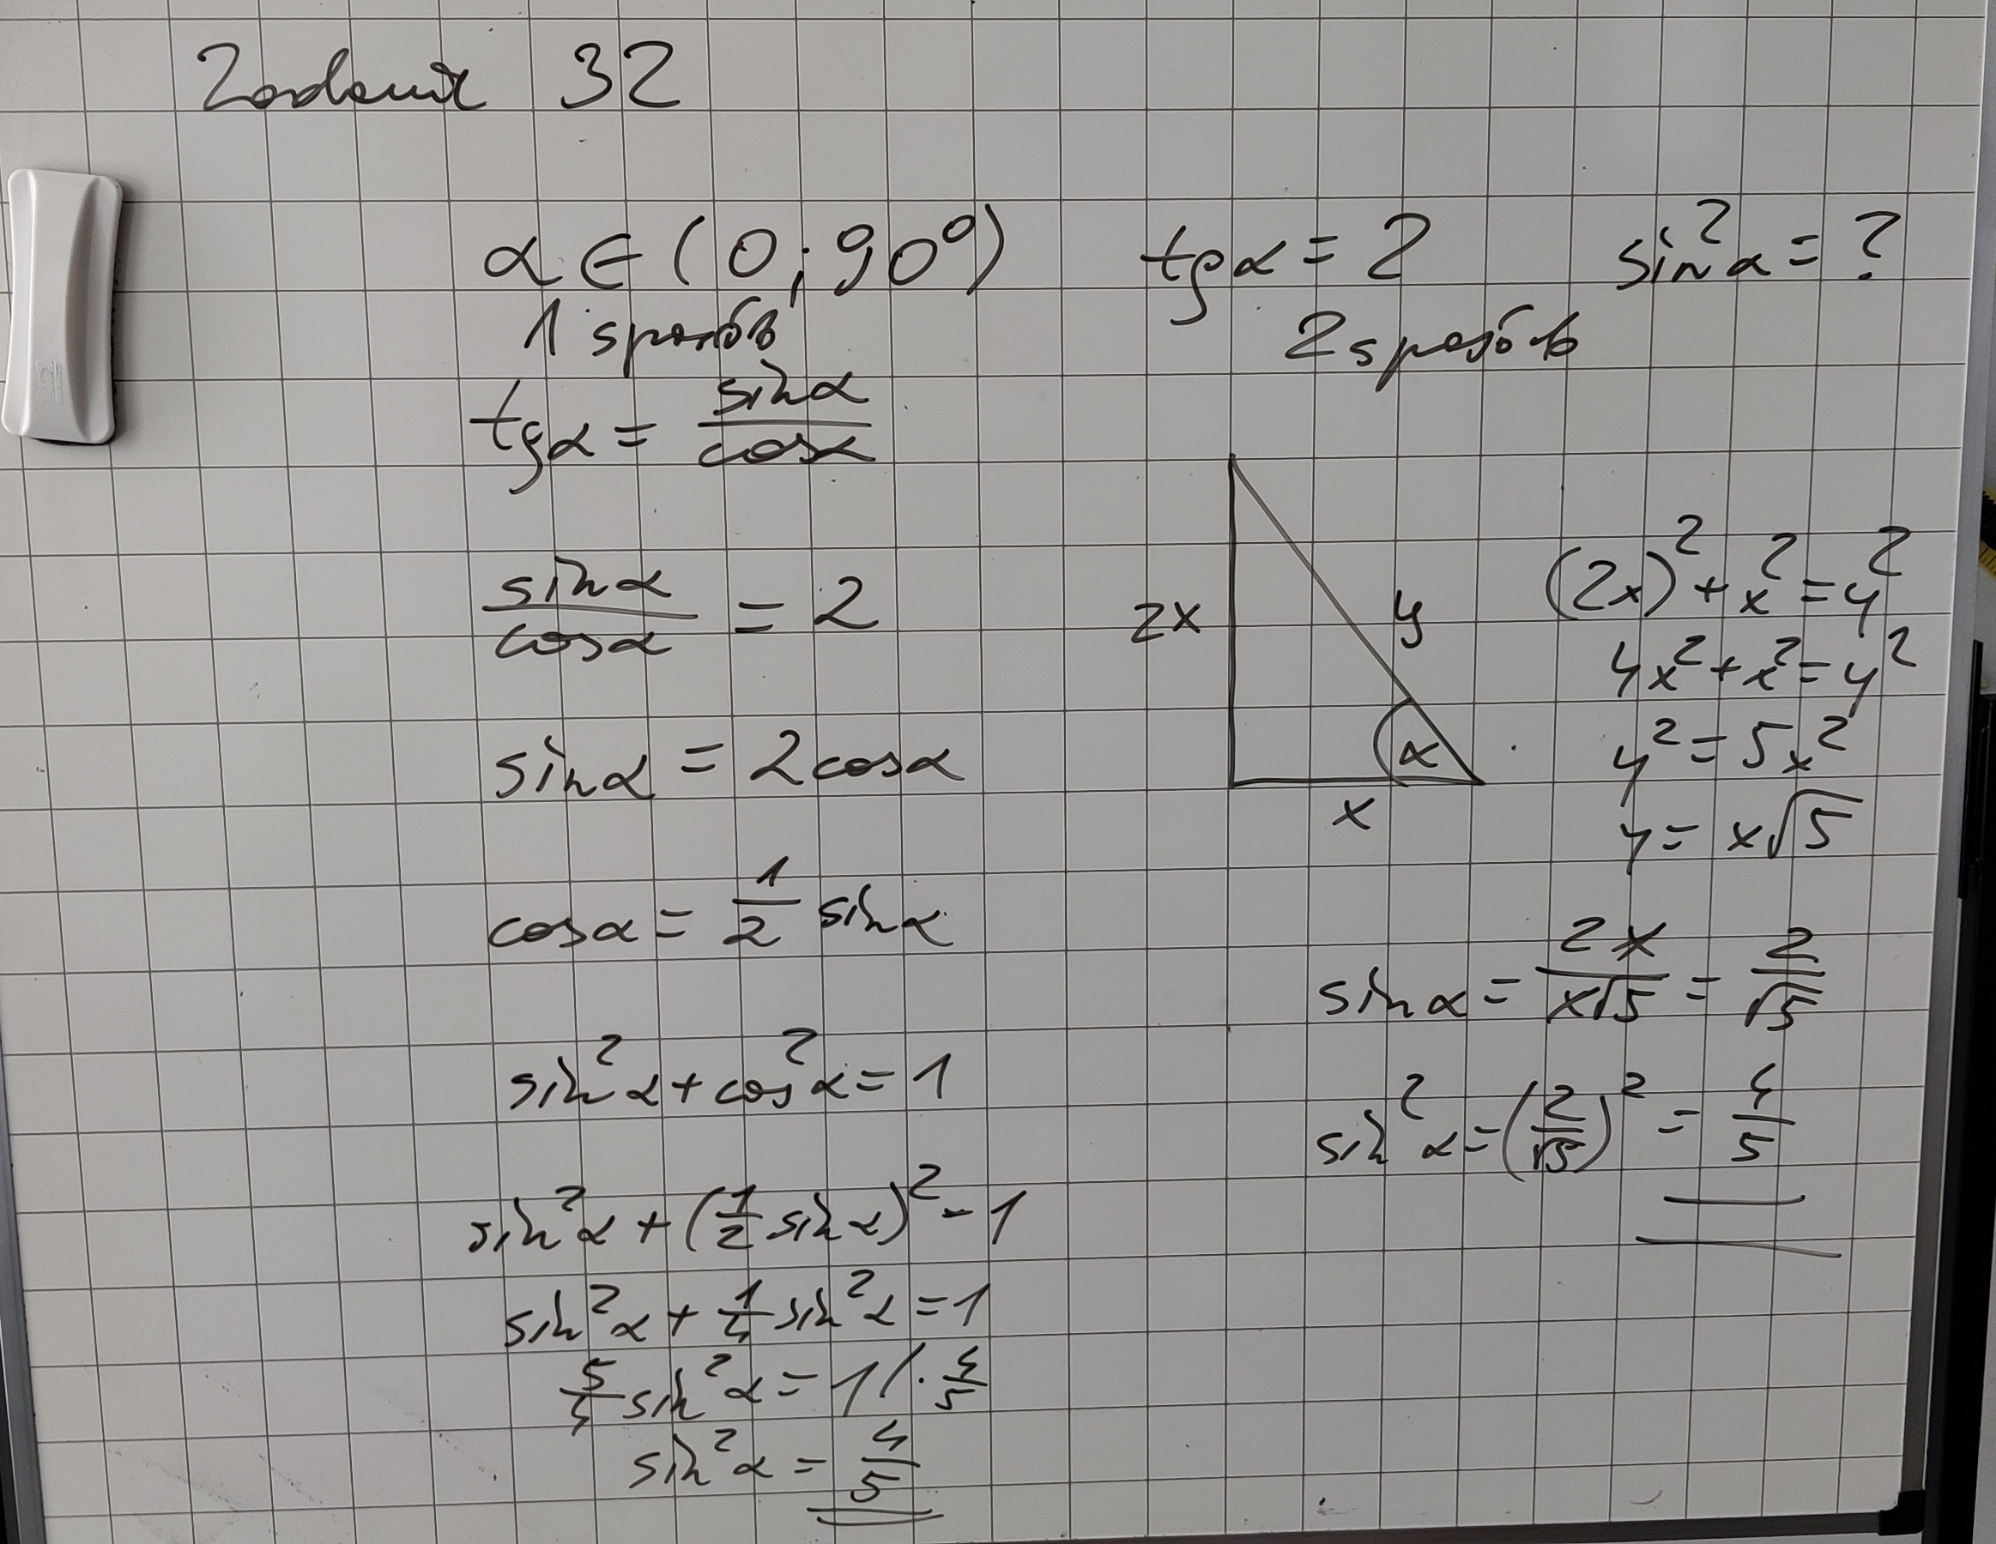 Zadanie 32
α ∈ (0; 90°) tgα = 2 sin²α = ?
1 sposób
tgα = sinα/cosα
sinα/cosα = 2
sinα = 2cosα
cosα = 1/2 sinα
sin²α + cos²α = 1
sin²α + (1/2 sinα)² = 1
sin²α + 1/4 sin²α = 1
5/4 sin²α = 1 /· 4/5
sin²α = 4/5
2 sposób
2x
y
α
x
(2x)² + x² = y²
4x² + x² = y²
y² = 5x²
y = x√5
sinα = 2x/x√5 = 2/√5
sin²α = (2/√5)² = 4/5